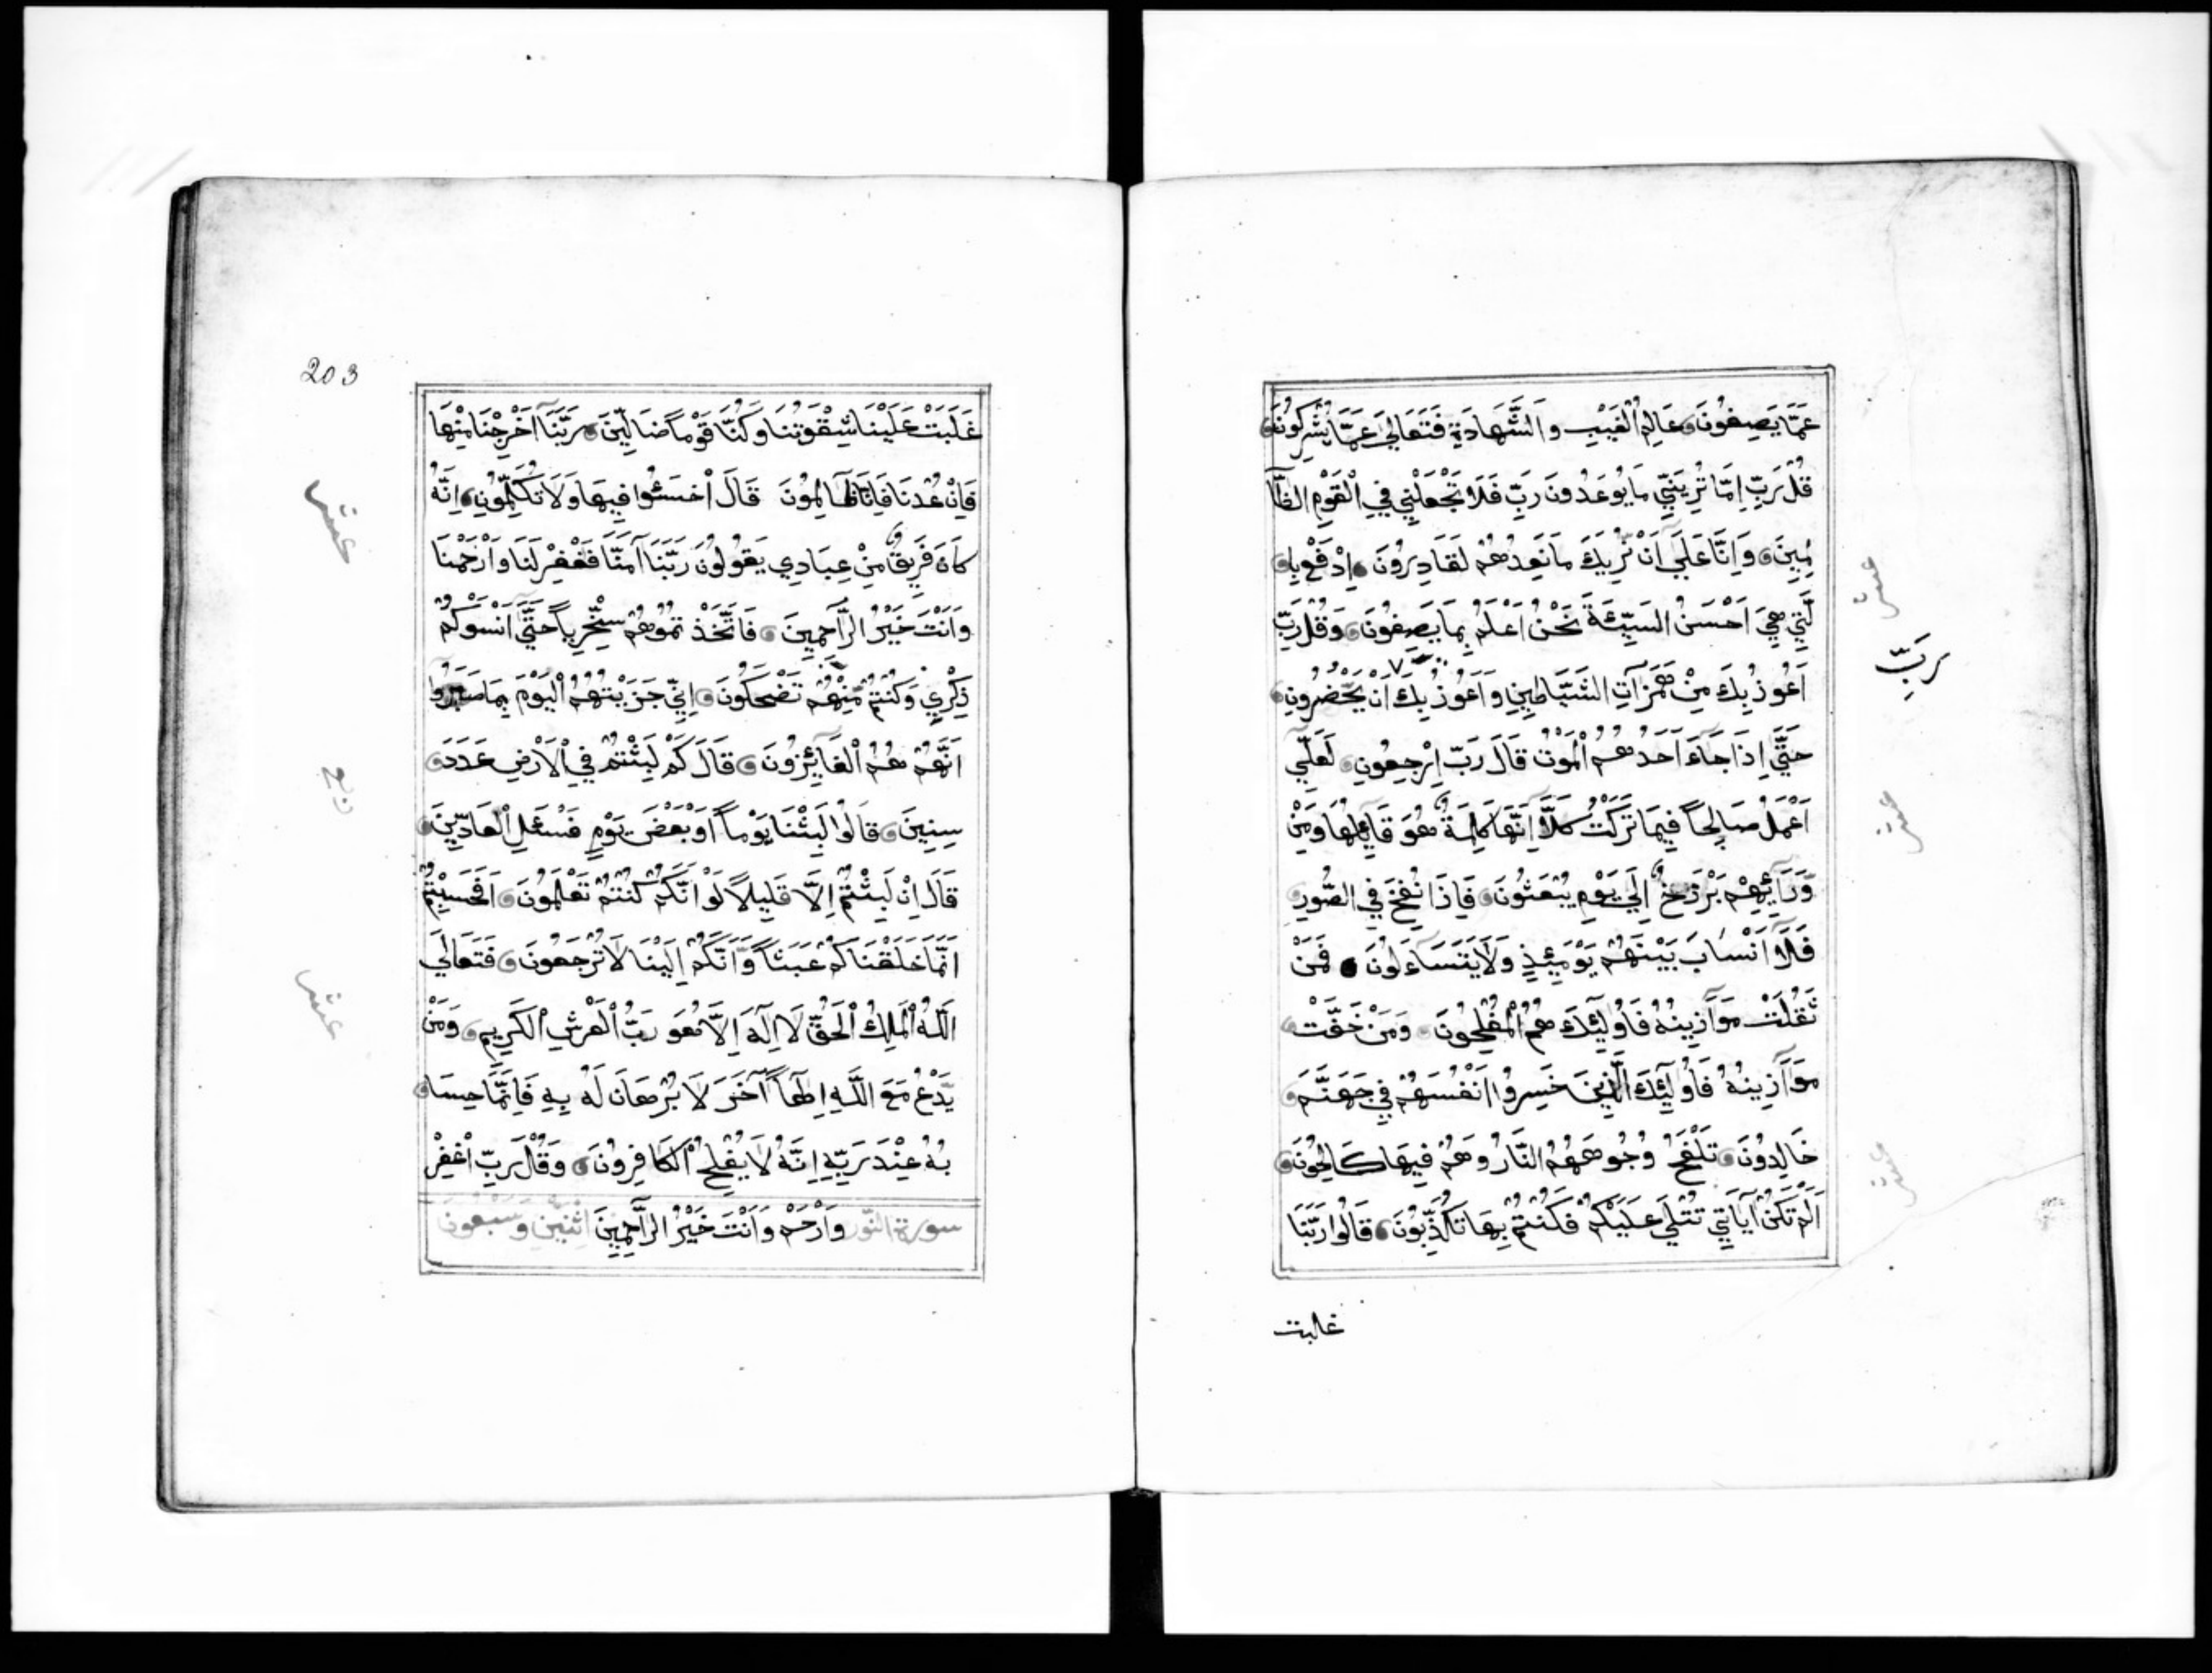 عَمَّا يَصِفُونَ عَالِمِ الْغَيْبِ وَالشَّهَادَةِ فَتَعَالَىٰ عَمَّا يُشْرِكُونَ
قُلْ رَبِّ إِمَّا تُرِيَنِّي مَا يُوعَدُونَ رَبِّ فَلَا تَجْعَلْنِي فِي الْقَوْمِ الظَّا
لِمِينَ وَإِنَّا عَلَى أَنْ نُرِيَكَ مَا نَعِدُهُمْ لَقَادِرُونَ إِدْفَعْ بِا
لَّتِي هِيَ أَحْسَنُ السَّيِّئَةَ نَحْنُ أَعْلَمُ بِمَا يَصِفُونَ وَقُلْ رَبِّ
أَعُوذُ بِكَ مِنْ هَمَزَاتِ الشَّيَاطِينِ وَأَعُوذُ بِكَ أَنْ يَحْضُرُونِ
رَبِّ
حَتَّى إِذَا جَاءَ أَحَدَهُمُ الْمَوْتُ قَالَ رَبِّ ارْجِعُونِ لَعَلِّي
أَعْمَلُ صَالِحاً فِيمَا تَرَكْتُ كَلَّا إِنَّهَا كَلِمَةٌ هُوَ قَائِلُهَا وَمِنْ
وَّرَائِهِمْ بَرْزَخٌ إِلَى يَوْمِ يُبْعَثُونَ فَإِذَا نُفِخَ فِي الصُّورِ
فَلَا أَنْسَابَ بَيْنَهُمْ يَوْمَئِذٍ وَلَا يَتَسَاءَلُونَ فَمَنْ
ثَقُلَتْ مَوَازِينُهُ فَأُولَئِكَ هُمُ الْمُفْلِحُونَ وَمَنْ خَفَّتْ
مَوَازِينُهُ فَأُولَئِكَ الَّذِينَ خَسِرُوا أَنْفُسَهُمْ فِي جَهَنَّمَ
خَالِدُونَ تَلْفَحُ وُجُوهَهُمُ النَّارُ وَهُمْ فِيهَا كَالِحُونَ
أَلَمْ تَكُنْ آيَاتِي تُتْلَى عَلَيْكُمْ فَكُنْتُمْ بِهَا تُكَذِّبُونَ قَالُوا رَبَّنَا
غلبت
عشر
عشر
عشر
203
غَلَبَتْ عَلَيْنَا شِقْوَتُنَا وَكُنَّا قَوْماً ضَالِّينَ رَبَّنَا أَخْرِجْنَا مِنْهَا
فَإِنْ عُدْنَا فَإِنَّا ظَالِمُونَ قَالَ اخْسَئُوا فِيهَا وَلَا تُكَلِّمُونِ إِنَّهُ
كَانَ فَرِيقٌ مِنْ عِبَادِي يَقُولُونَ رَبَّنَا آمَنَّا فَغْفِرْ لَنَا وَارْحَمْنَا
وَأَنْتَ خَيْرُ الرَّاحِمِينَ فَاتَّخَذْتُمُوهُمْ سِخْرِياً حَتَّى أَنْسَوْكُمْ
ذِكْرِي وَكُنْتُمْ مِنْهُمْ تَضْحَكُونَ إِنِّي جَزَيْتُهُمُ الْيَوْمَ بِمَا صَبَرُوا
أَنَّهُمْ هُمُ الْفَائِزُونَ قَالَ كَمْ لَبِثْتُمْ فِي الْأَرْضِ عَدَدَ
سِنِينَ قَالُوا لَبِثْنَا يَوْماً أَوْ بَعْضَ يَوْمٍ فَسْئَلِ الْعَادِّينَ
قَالَ إِنْ لَبِثْتُمْ إِلَّا قَلِيلاً لَوْ أَنَّكُمْ كُنْتُمْ تَعْلَمُونَ أَفَحَسِبْتُمْ
أَنَّمَا خَلَقْنَاكُمْ عَبَثاً وَّأَنَّكُمْ إِلَيْنَا لَا تُرْجَعُونَ فَتَعَالَى
اللَّهُ الْمَلِكُ الْحَقُّ لَا إِلَهَ إِلَّا هُوَ رَبُّ الْعَرْشِ الْكَرِيمِ وَمَنْ
يَّدْعُ مَعَ اللَّهِ إِلَهاً آخَرَ لَا بُرْهَانَ لَهُ بِهِ فَإِنَّمَا حِسَا
بُهُ عِنْدَ رَبِّهِ إِنَّهُ لَا يُفْلِحُ الْكَافِرُونَ وَقُلْ رَبِّ اغْفِرْ
سورة النّور وَارْحَمْ وَأَنْتَ خَيْرُ الرَّاحِمِينَ اثْنِين وَسَبْعُونَ
عشر
عشر